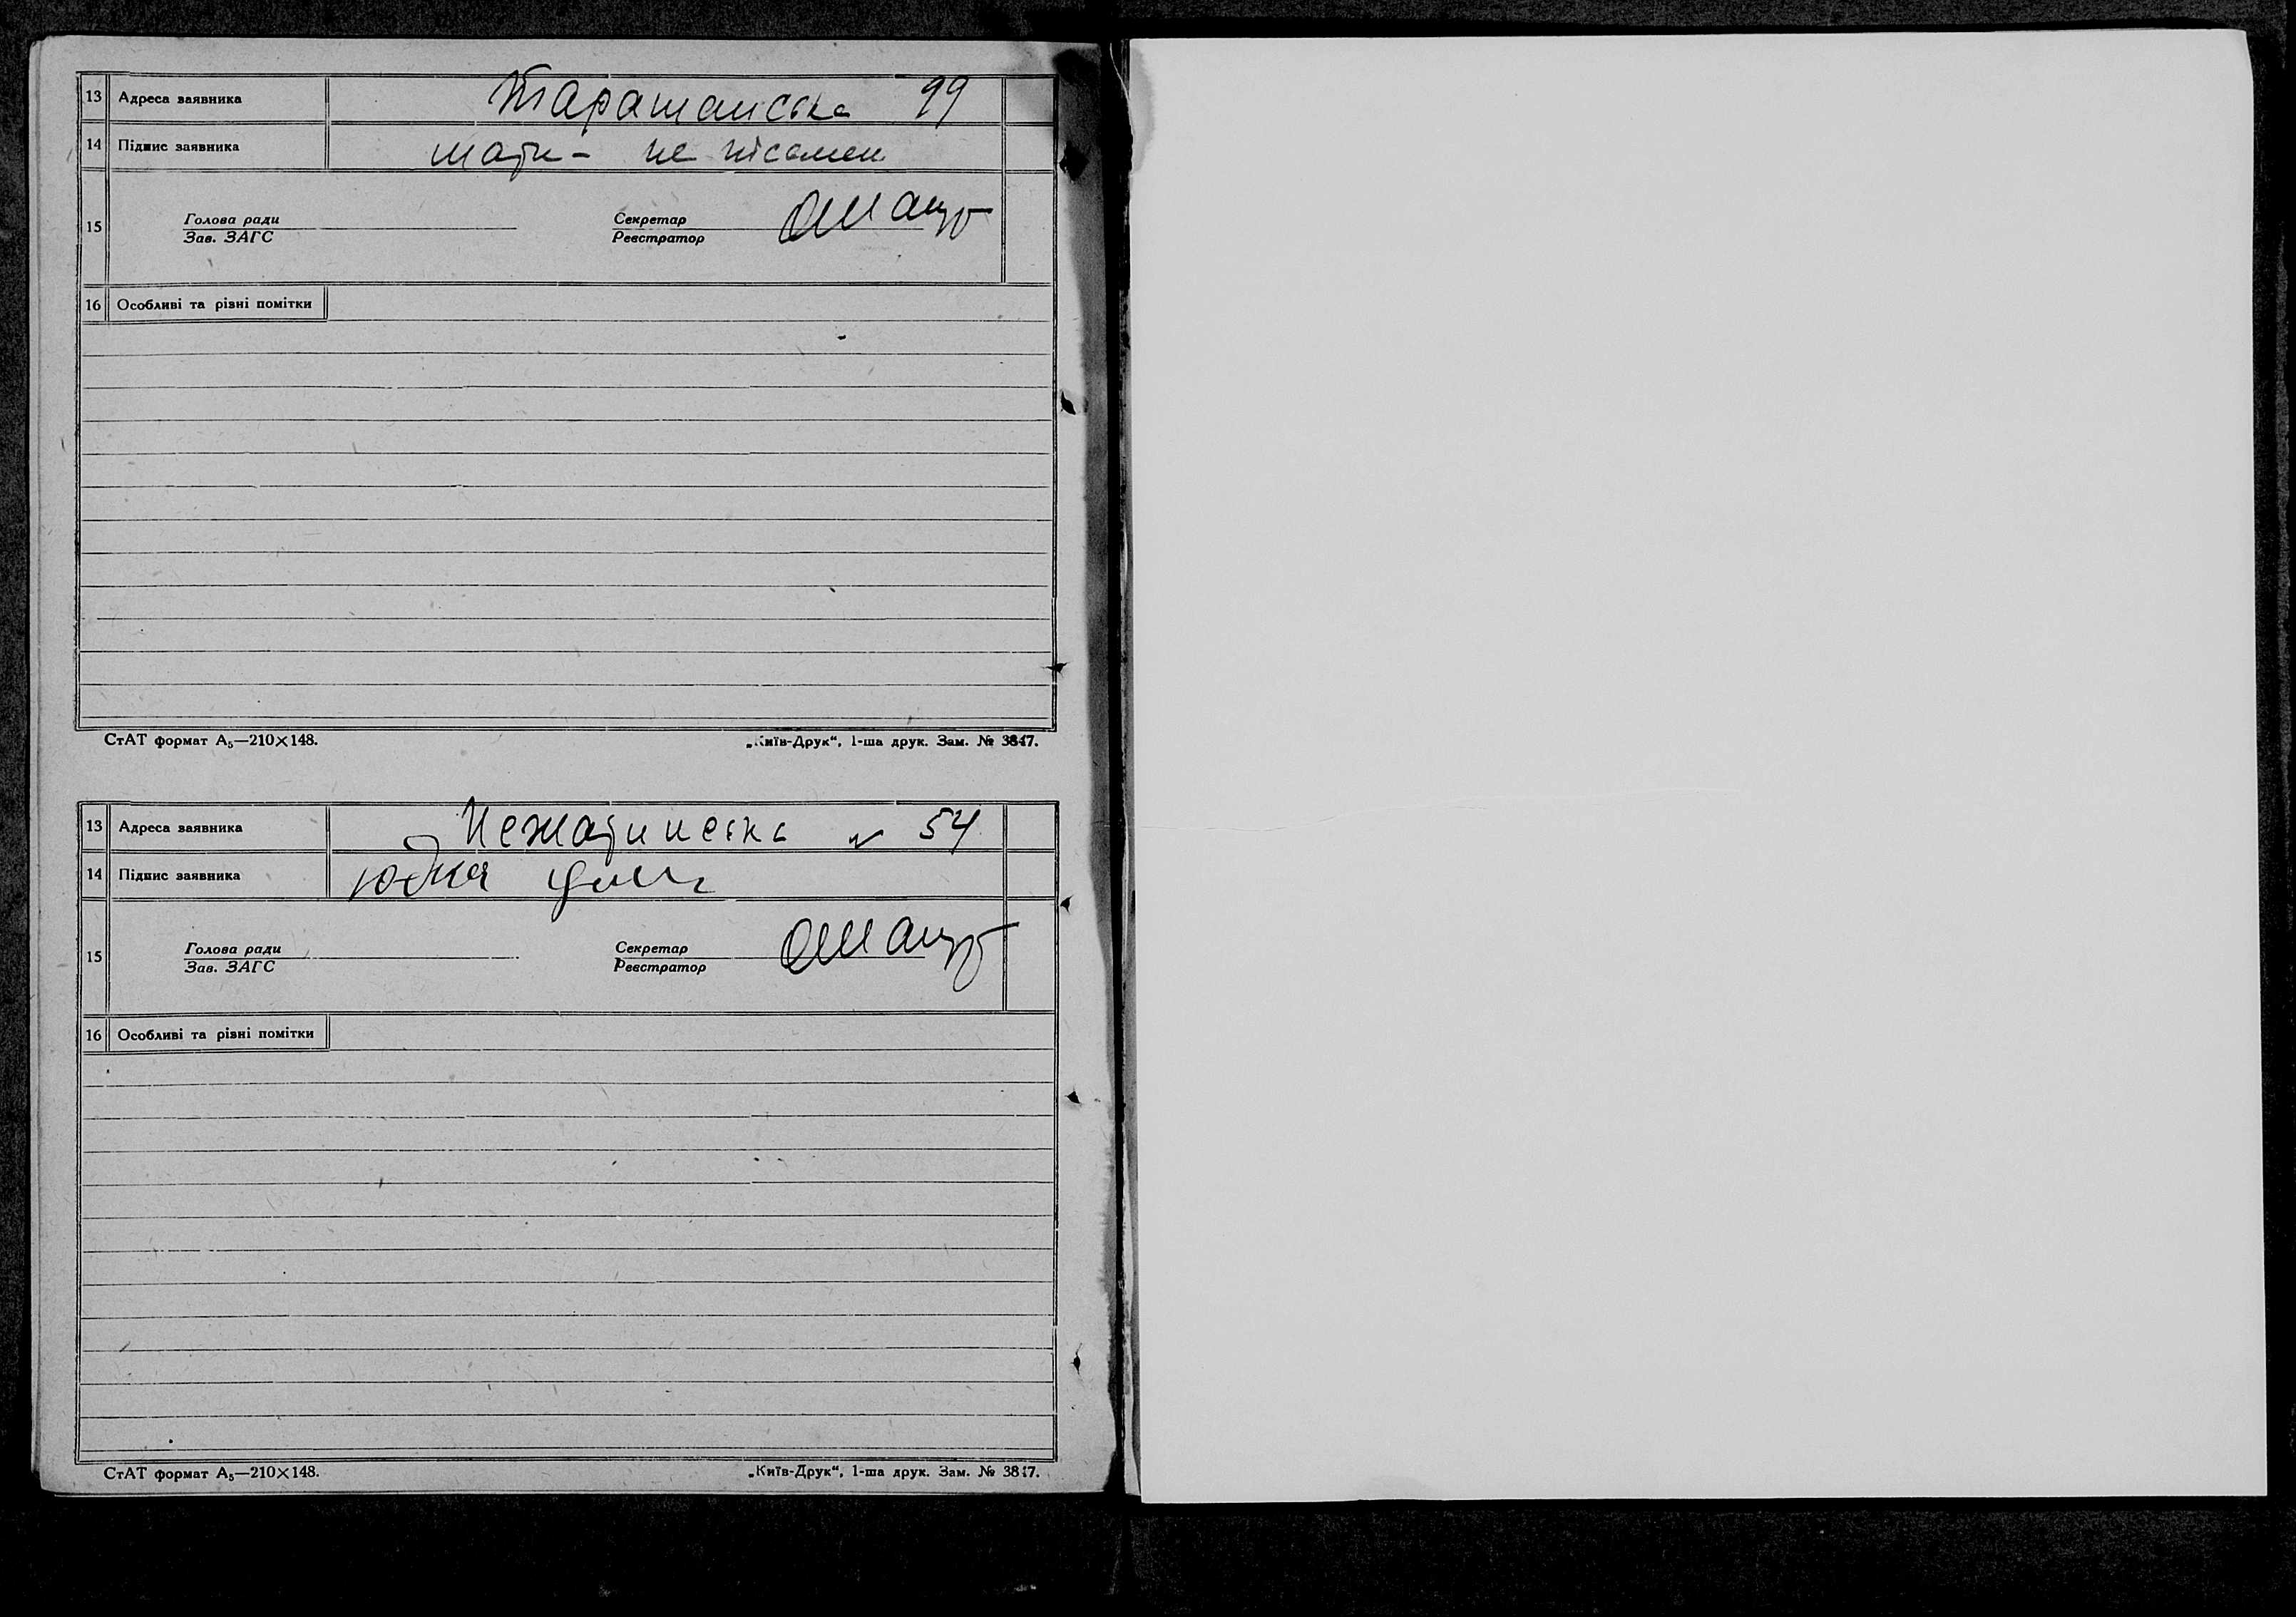 13 Адреса заявника Таращанська 99
14 Підпис заявника мати - не písьмен
15 Голова ради Секретар
Зав. ЗАГС Реєстратор
16 Особливі та різні помітки
СтАТ формат А₅—210×148. „Київ-Друк“, 1-ша друк. Зам. № 3847.
13 Адреса заявника Нежатинська № 54
14 Підпис заявника
15 Голова ради Секретар
Зав. ЗАГС Реєстратор
16 Особливі та різні помітки
СтАТ формат А₅—210×148. „Київ-Друк“, 1-ша друк. Зам. № 3847.